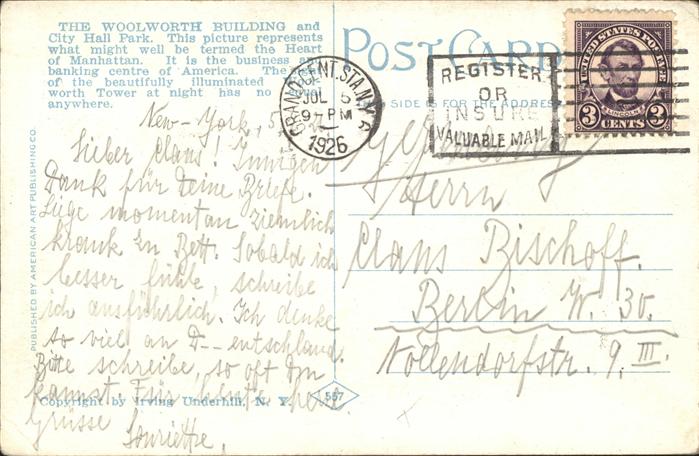 THE WOOLWORTH BUILDING and
City Hall Park. This picture represents
what might well be termed the Heart
of Manhattan. It is the business an
banking centre of America. The
of the beautifully illuminated
worth Tower at night has no equal
anywhere.
PUBLISHED BY AMERICAN ART PUBLISHING CO.
New-York, 5
Lieber Claus! Innigen
Dank für Deine Briefe.
Liege momentan ziemlich
krank zu Bett. Sobald ich
besser fühle, schreibe
ich ausführlich. Ich denke
so viel an D--entschland.
Bitte schreibe, so oft Du
kannst. Für heut'
Grüsse
Copyright by Irving Underhill, N. Y.
557
POST CARD
THIS SIDE IS FOR THE ADDRESS
GRAND CENT. STA. N.Y.
JUL 5
9-PM
1926
REGISTER
OR
INSURE
VALUABLE MAIL
UNITED STATES POSTAGE
LINCOLN
3 CENTS 3
Germany
Herrn
Claus Bischoff.
Berlin W. 30.
Nollendorfstr. 9. III.